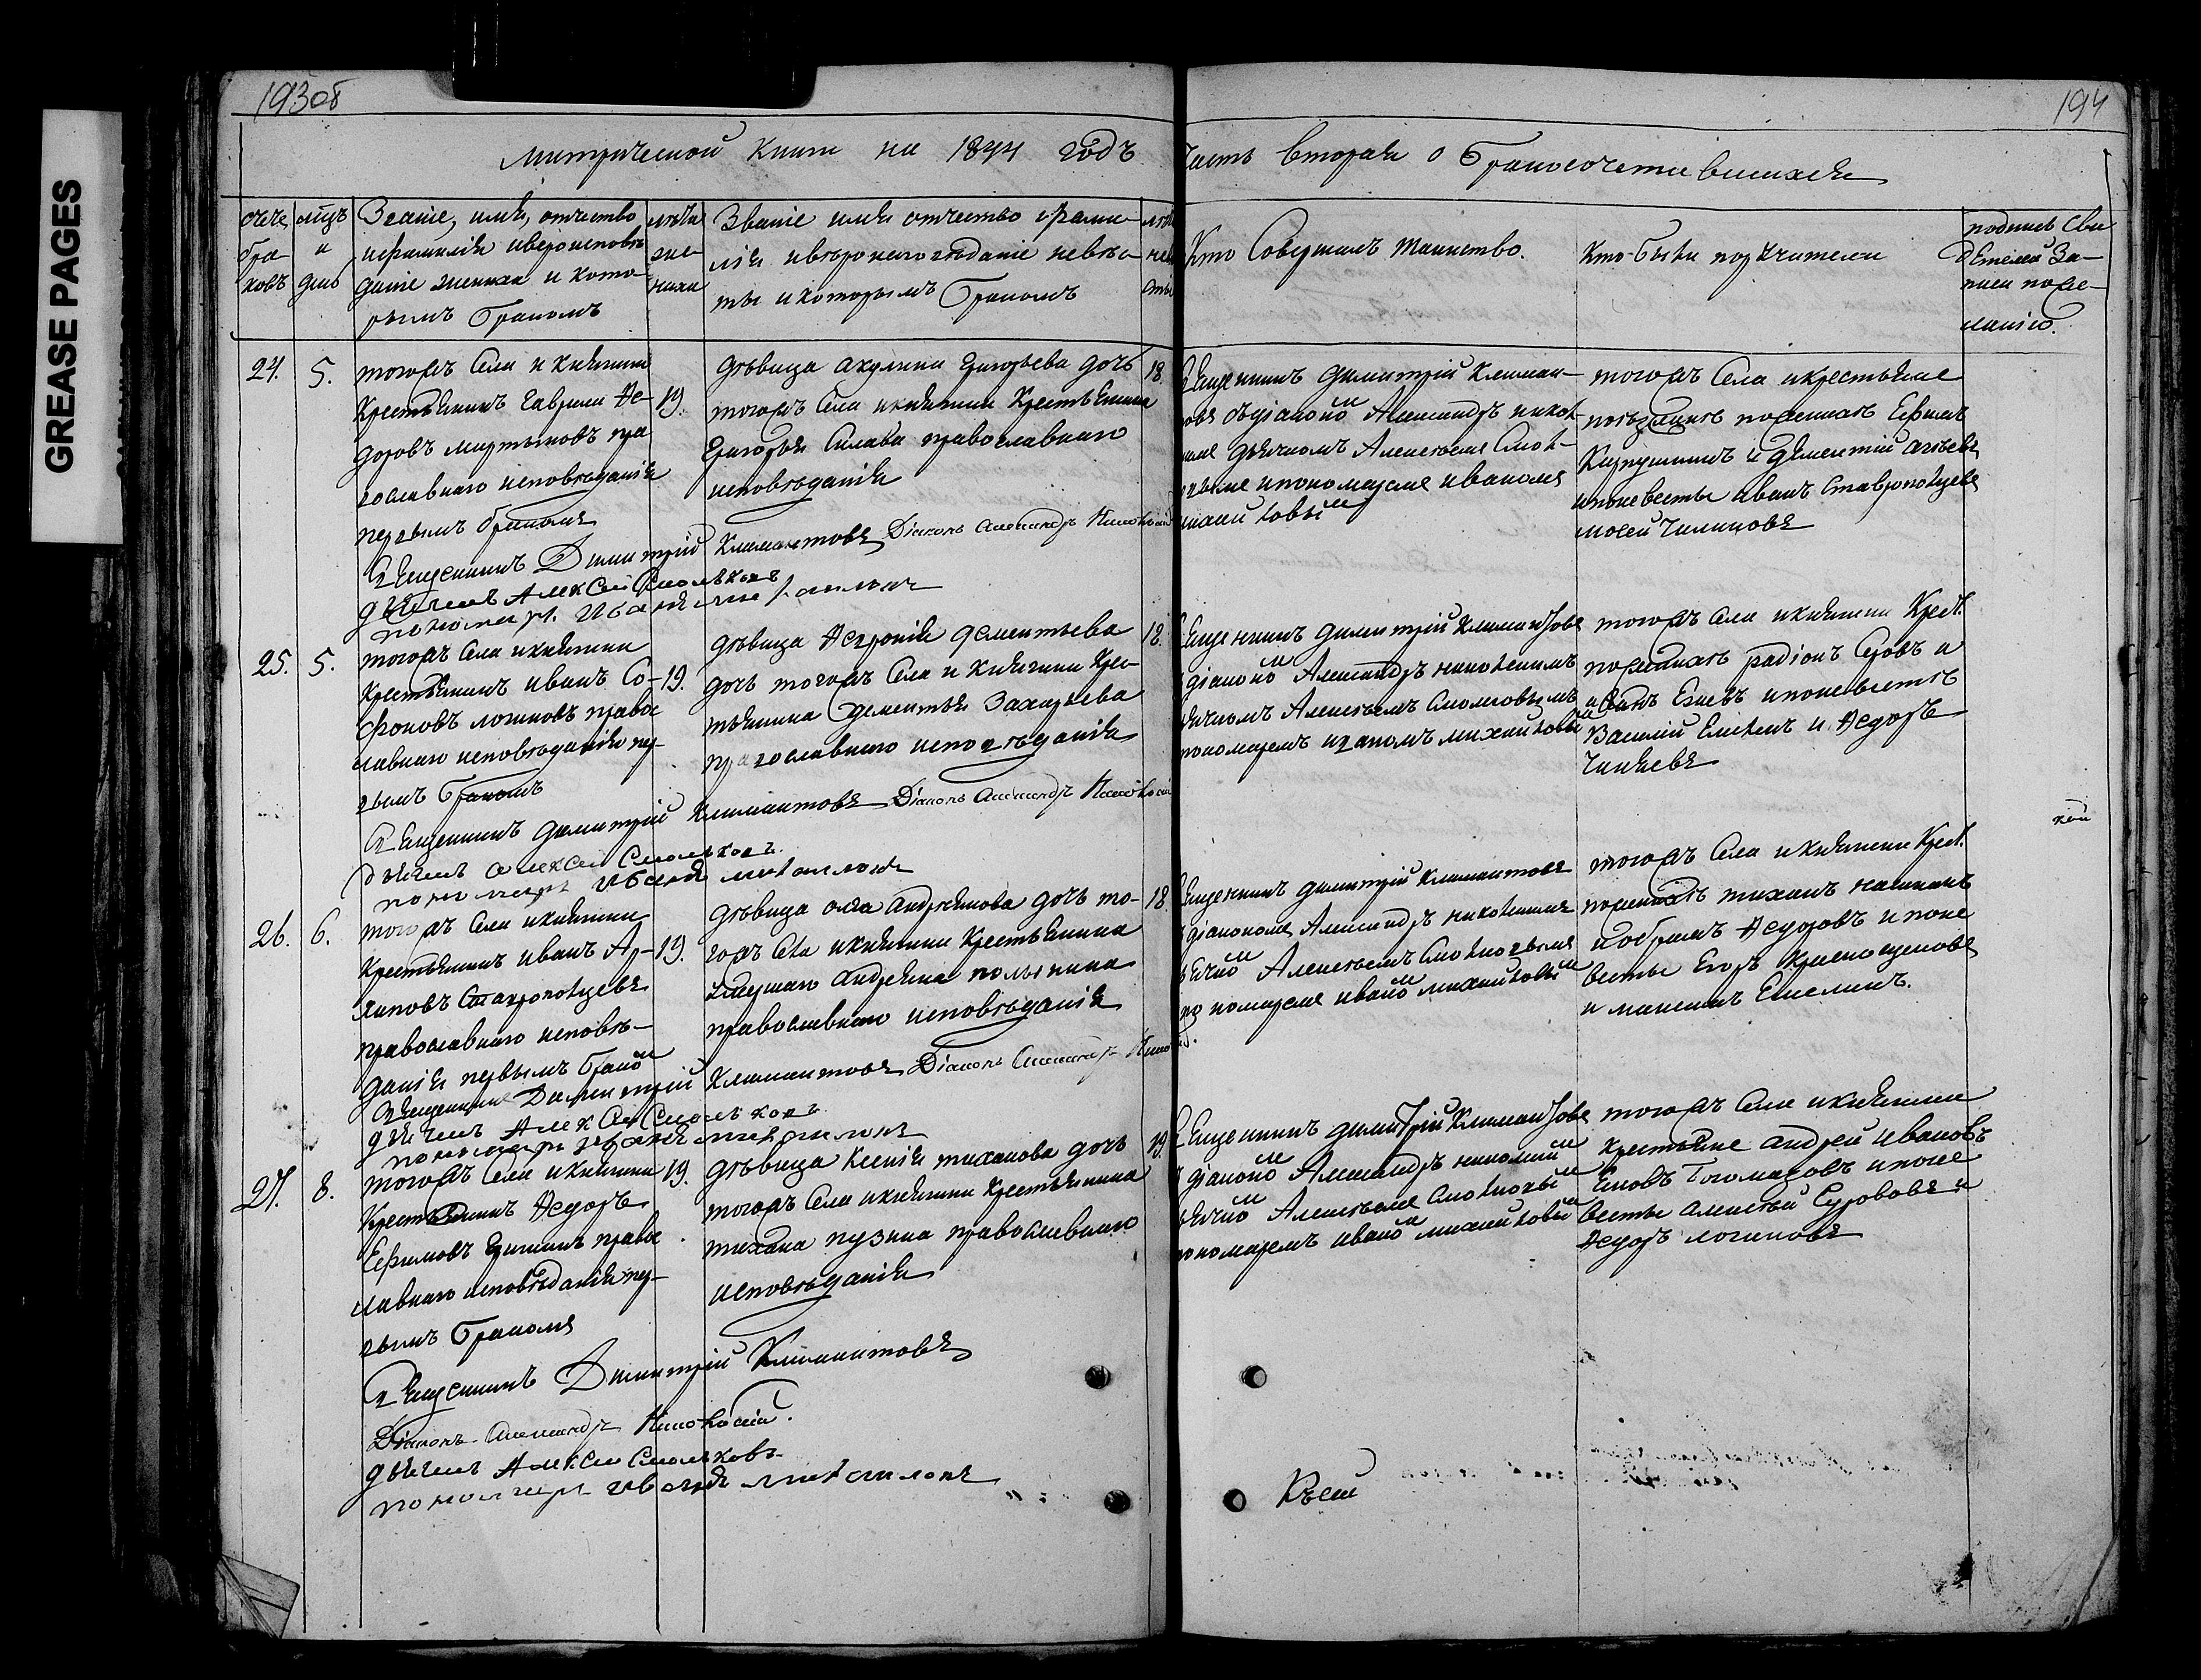 GREASE PAGES
193об
194
Метрической книги на 1844 годъ
часть вторая о бракосочетавшихся
счетъ браковъ
мцъ и день
Званіе, имя, отчество
и фамилія и вероисповѣ
даніе жениха и кото-
рымъ бракомъ
лѣта
же-
ниха
Званіе имя отчество и фами-
лія и вѣроисповѣданіе невѣс-
ты и которымъ бракомъ
Кто Совершалъ таинство.
Кто были поручители
подпись сви
дѣтелей За-
писи по же-
ланію.
24. 5.
тогожъ Села и княгини
Крестьянинъ Гаврила Ѳе-
доровъ мартыновъ пра
вославнаго исповѣданія
первымъ бракомъ
19.
дѣвица акулина Григорьева дочь
тогожъ Села и княгини Крестьянина
Григорья Силава православнаго
исповѣданія
18.
Священникъ димитрій Климан-
дьячкомъ Алексѣемъ Смол-
и пономаремъ иваномъ
михайловымъ
тогожъ Села и крестьяне
поѣзжане по женихѣ Ефимъ
и Дементій
и по невесты иванъ Ставропольцевъ
Священникъ Димитрій Климантовъ Діаконъ Александръ Никольскій
дьячекъ Алексей Смольковъ
пономарь Иванъ михайловъ
25. 5.
тогожъ Села и княгини
Крестьянинъ иванъ Со-
фроновъ логиновъ правос
лавнаго исповѣданія пер-
вымъ бракомъ
19.
дѣвица Ѳеврония дементьева
дочь тогожъ Села и княгини Крес-
тьянина дементья Захарьева
православнаго исповѣданія
18.
Священникъ димитрій Климантовъ
діакономъ Александръ никольскимъ
дьячкомъ Алексѣемъ Смольковымъ
пономаремъ иваномъ михайловымъ
тогожъ Села и княгини Крест.
по женихѣ радіонъ Серовъ и
и по невестѣ
Василій и Ѳедоръ
Священникъ димитрій Климантовъ Діаконъ Александръ Никольскій
дьячекъ алексей Смольковъ
пономарь Иванъ михайловъ
26. 6.
тогожъ Села и княгини
Крестьянинъ иванъ Ар-
хиповъ Ставропольцевъ
православнаго исповѣ-
данія первымъ бракомъ
19.
дѣвица олга андреянова дочь то-
гожъ Села и княгини Крестьянина
умершаго андреяна полынина
православнаго исповѣданія
18.
Священникъ димитрій Климантовъ
діакономъ Александръ никольскимъ
дьячкомъ Алексѣемъ Смольковымъ
пономаремъ иваномъ михайловымъ
тогожъ Села и княгини Крест.
по женихѣ тихонъ
Ѳедоровъ и по не
весты Егоръ Краснощековъ
и максимъ
Священникъ Димитрій Климантовъ Діаконъ Александръ
дьячекъ Алексей Смольковъ
пономарь Иванъ михайловъ
27. 8.
тогожъ Села и княгини
Крестьянинъ Ѳедоръ
Ефимовъ Гришинъ правос
лавнаго исповѣданія пер-
вымъ бракомъ
19.
дѣвица Ксенія тихонова дочь
тогожъ Села и княгини Крестьянина
тихона пузина православнаго
исповѣданія
19.
Священникъ димитрій Климантовъ
діакономъ Александръ никольскимъ
дьячкомъ Алексѣемъ Смольковымъ
пономаремъ иваномъ михайловымъ
тогожъ Села и княгини
Крестьяне андрей ивановъ
и по не
весты алексѣй Сурововъ и
Ѳедоръ логиновъ
Священникъ Димитрій Климантовъ
Діаконъ Александръ Никольскій.
дьячекъ Алексей Смольковъ
пономарь Иванъ михайловъ